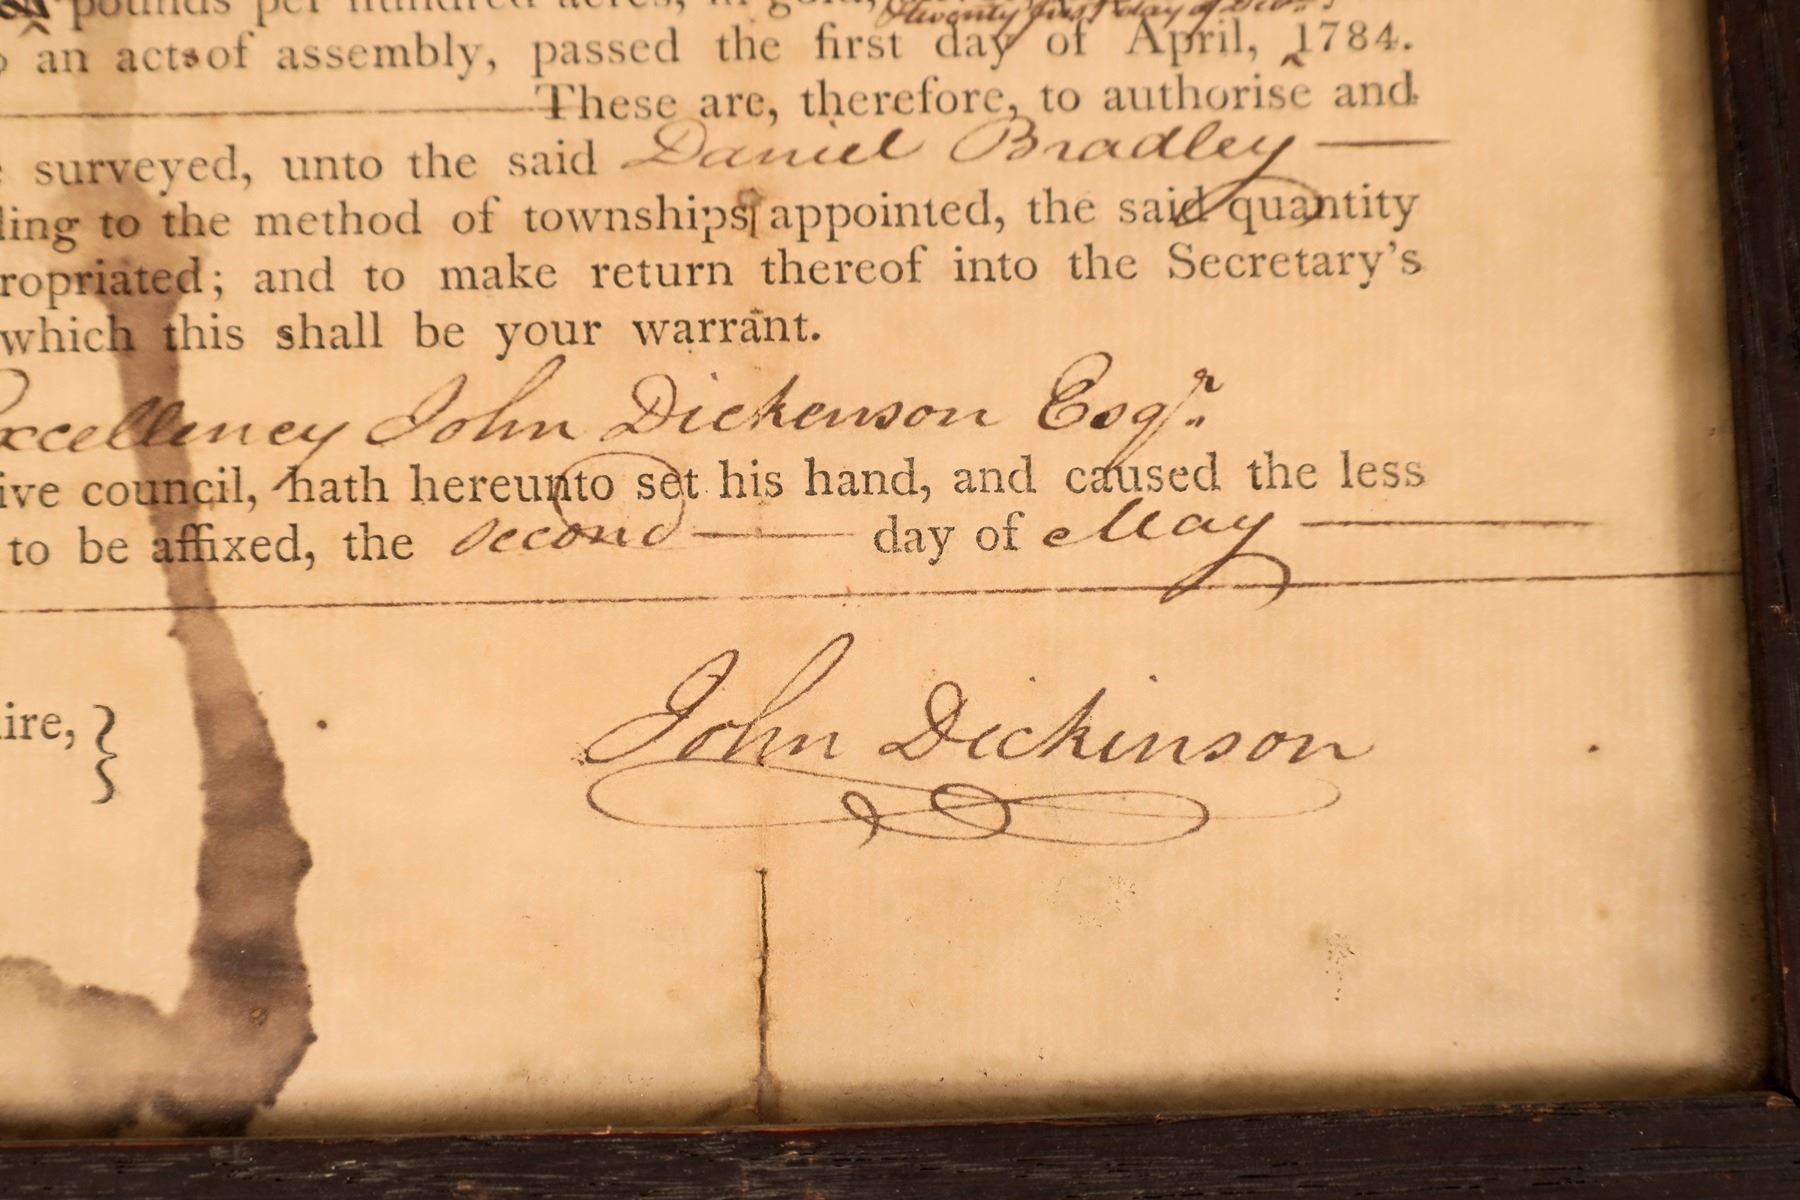 pounds per hundred acres, in gold,
& twenty first day of Decr.
an acts of assembly, passed the first day of April, ‸1784.
These are, therefore, to authorise and
surveyed, unto the said Daniel Bradley
ling to the method of townships appointed, the said quantity
ropriated; and to make return thereof into the Secretary's
which this shall be your warrant.
xcellency John Dickenson Esqr.
ive council, hath hereunto set his hand, and caused the less
to be affixed, the second day of May
ire, }
John Dickinson